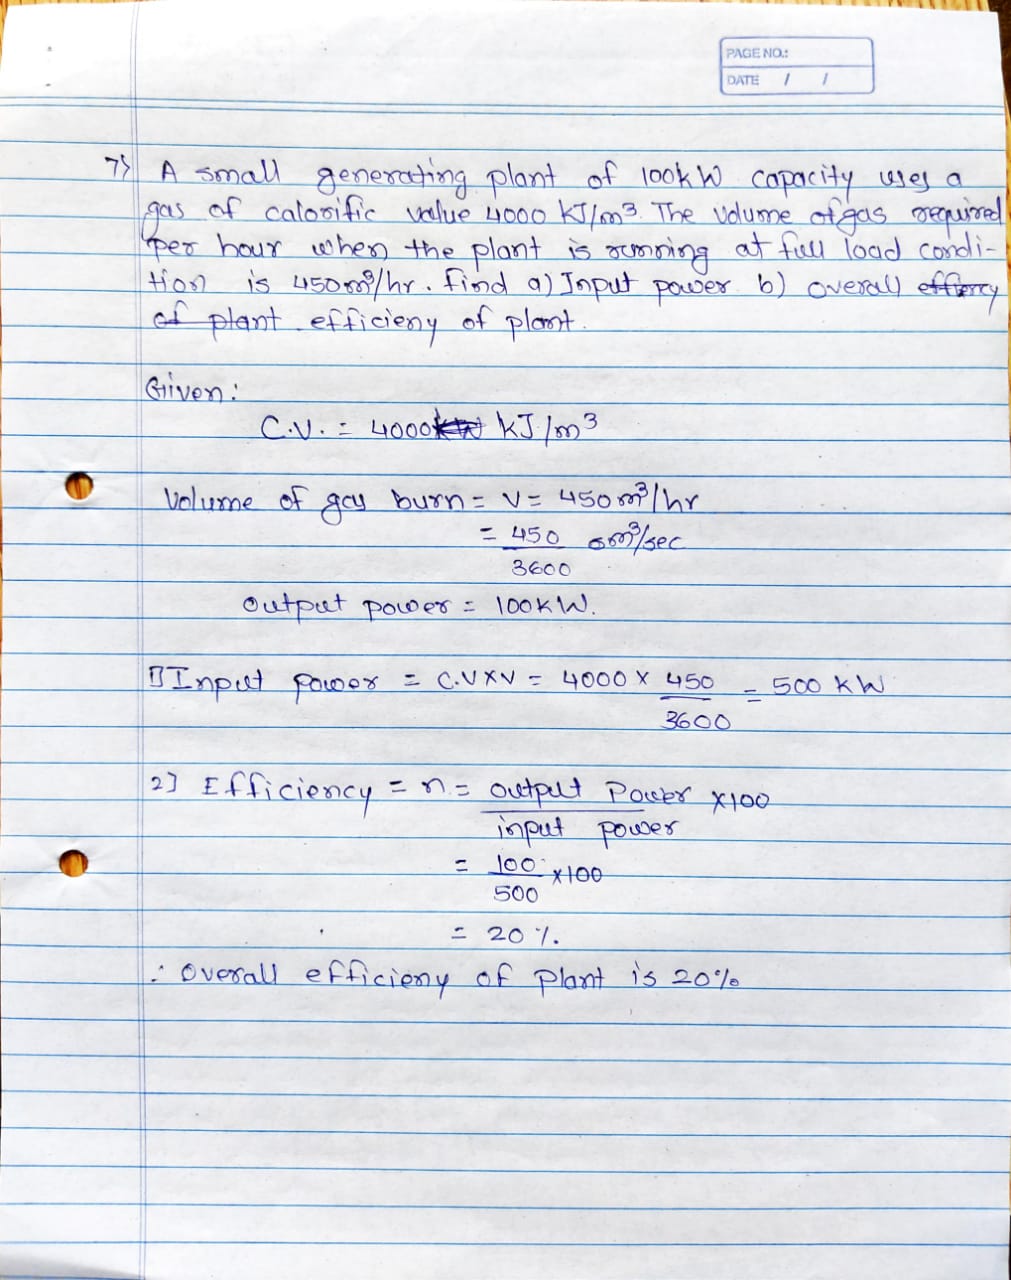 PAGE NO.:
DATE / /
7} A small generating plant of 100kW capacity uses a
gas of calorific value 4000 KJ/m3. The volume of gas required
per hour when the plant is running at full load condi-
tion is 450m3/hr. find a) Input power b) overall
plant efficieny of plant.
Given:
C.V. = 4000 KJ/m3
Volume of gas burn = V = 450m3/hr
= 450 m3/sec
3600
output power = 100KW.
1] Input power = C.V X V = 4000 X 450 = 500 KW
3600
2] Efficiency = n = output Power X100
input power
= 100 X100
500
= 20 %.
∴ Overall efficieny of plant is 20%